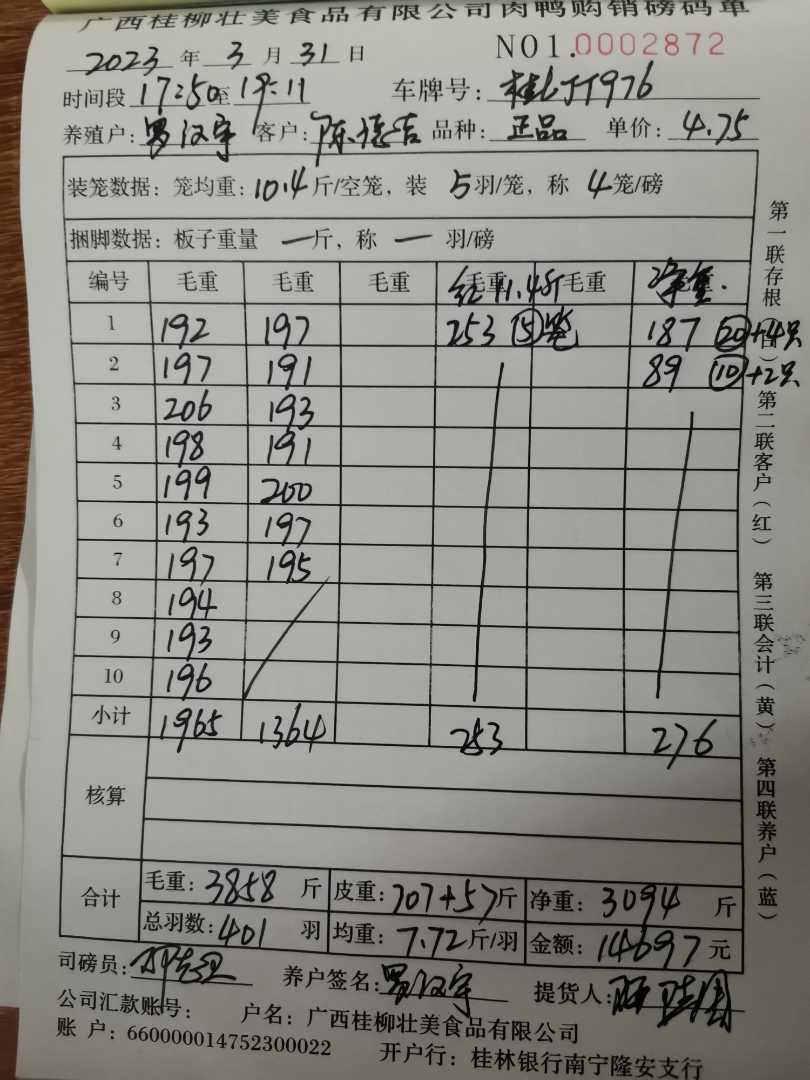 广西桂柳壮美食品有限公司肉鸭购销磅码单
2023年3月31日 NO1.0002872
时间段17:50至19:11 车牌号:
养殖户:罗汉宇 客户:陈德吉 品种:正品 单价:4.75
装笼数据:笼均重:10.4斤/空笼,装5羽/笼,称4笼/磅
捆脚数据:板子重量一斤,称一羽/磅
编号 毛重 毛重 毛重 红11.4斤 毛重 净重.
1 192 197 253 ⑤笼 187 ⑳+4只
2 197 191 89 ⑩+2只
3 206 193
4 198 191
5 199 200
6 193 197
7 197 195
8 194
9 193
10 196
小计 1965 1364 253 276
核算
合计 毛重:3858斤 皮重:707+57斤 净重:3094斤
总羽数:401羽 均重:7.72斤/羽 金额:14697元
司磅员: 养户签名:罗汉宇 提货人:
公司汇款账号: 户名:广西桂柳壮美食品有限公司
账 户:660000014752300022 开户行:桂林银行南宁隆安支行
第一联存根(白) 第二联客户(红) 第三联会计(黄) 第四联养户(蓝)